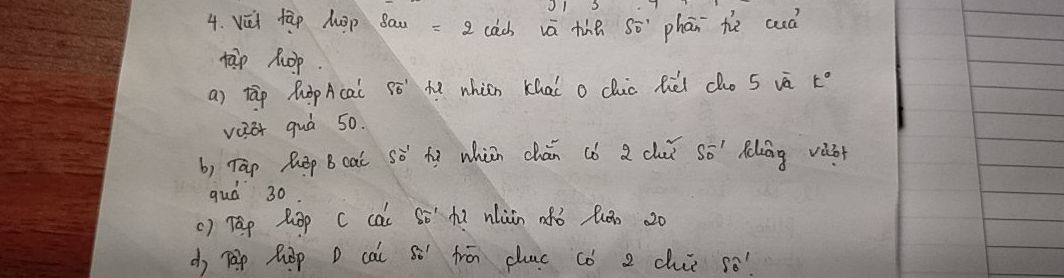 4. Viết tập hợp sau = 2 cách và tính số phần tử của
tập hợp.
a) Tập hợp A các số tự nhiên khác 0 chia hết cho 5 và k°
vượt quá 50.
b) Tập hợp B các số tự nhiên chẵn có 2 chữ số không vượt
quá 30.
c) Tập hợp C các số tự nhiên nhỏ hơn 20
d) Tập hợp D các số tròn chục có 2 chữ số.